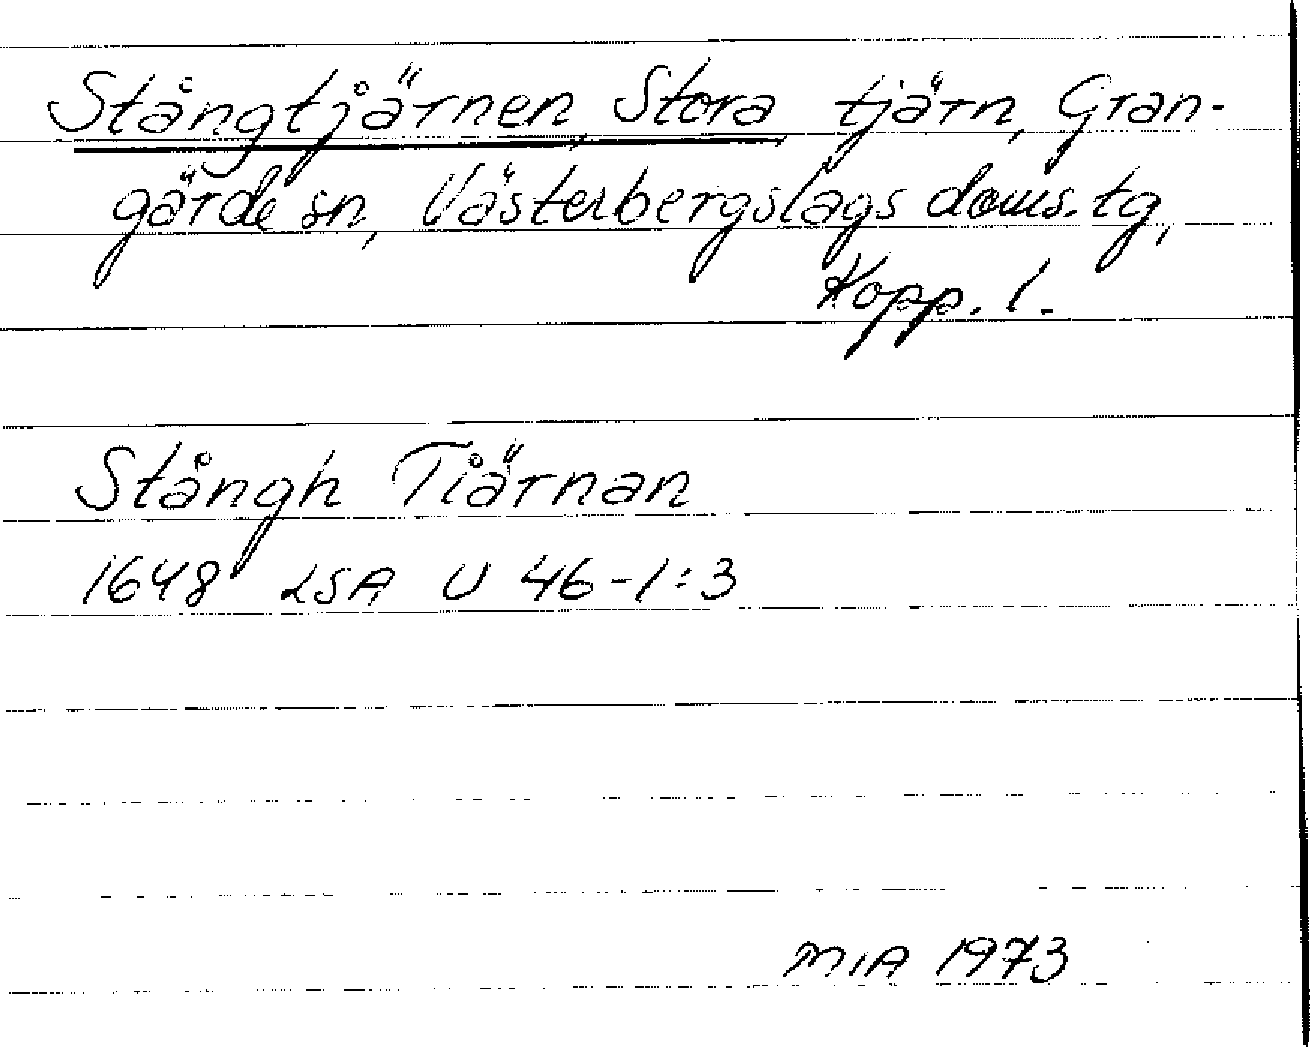 Stångtjärnen, Stora tjärn, Gran-
gärde sn, Västerbergslags doms. tg,
Kopp. l.
Stångh Tiärnan
1648 LSA U 46-1:3
MIA 1973